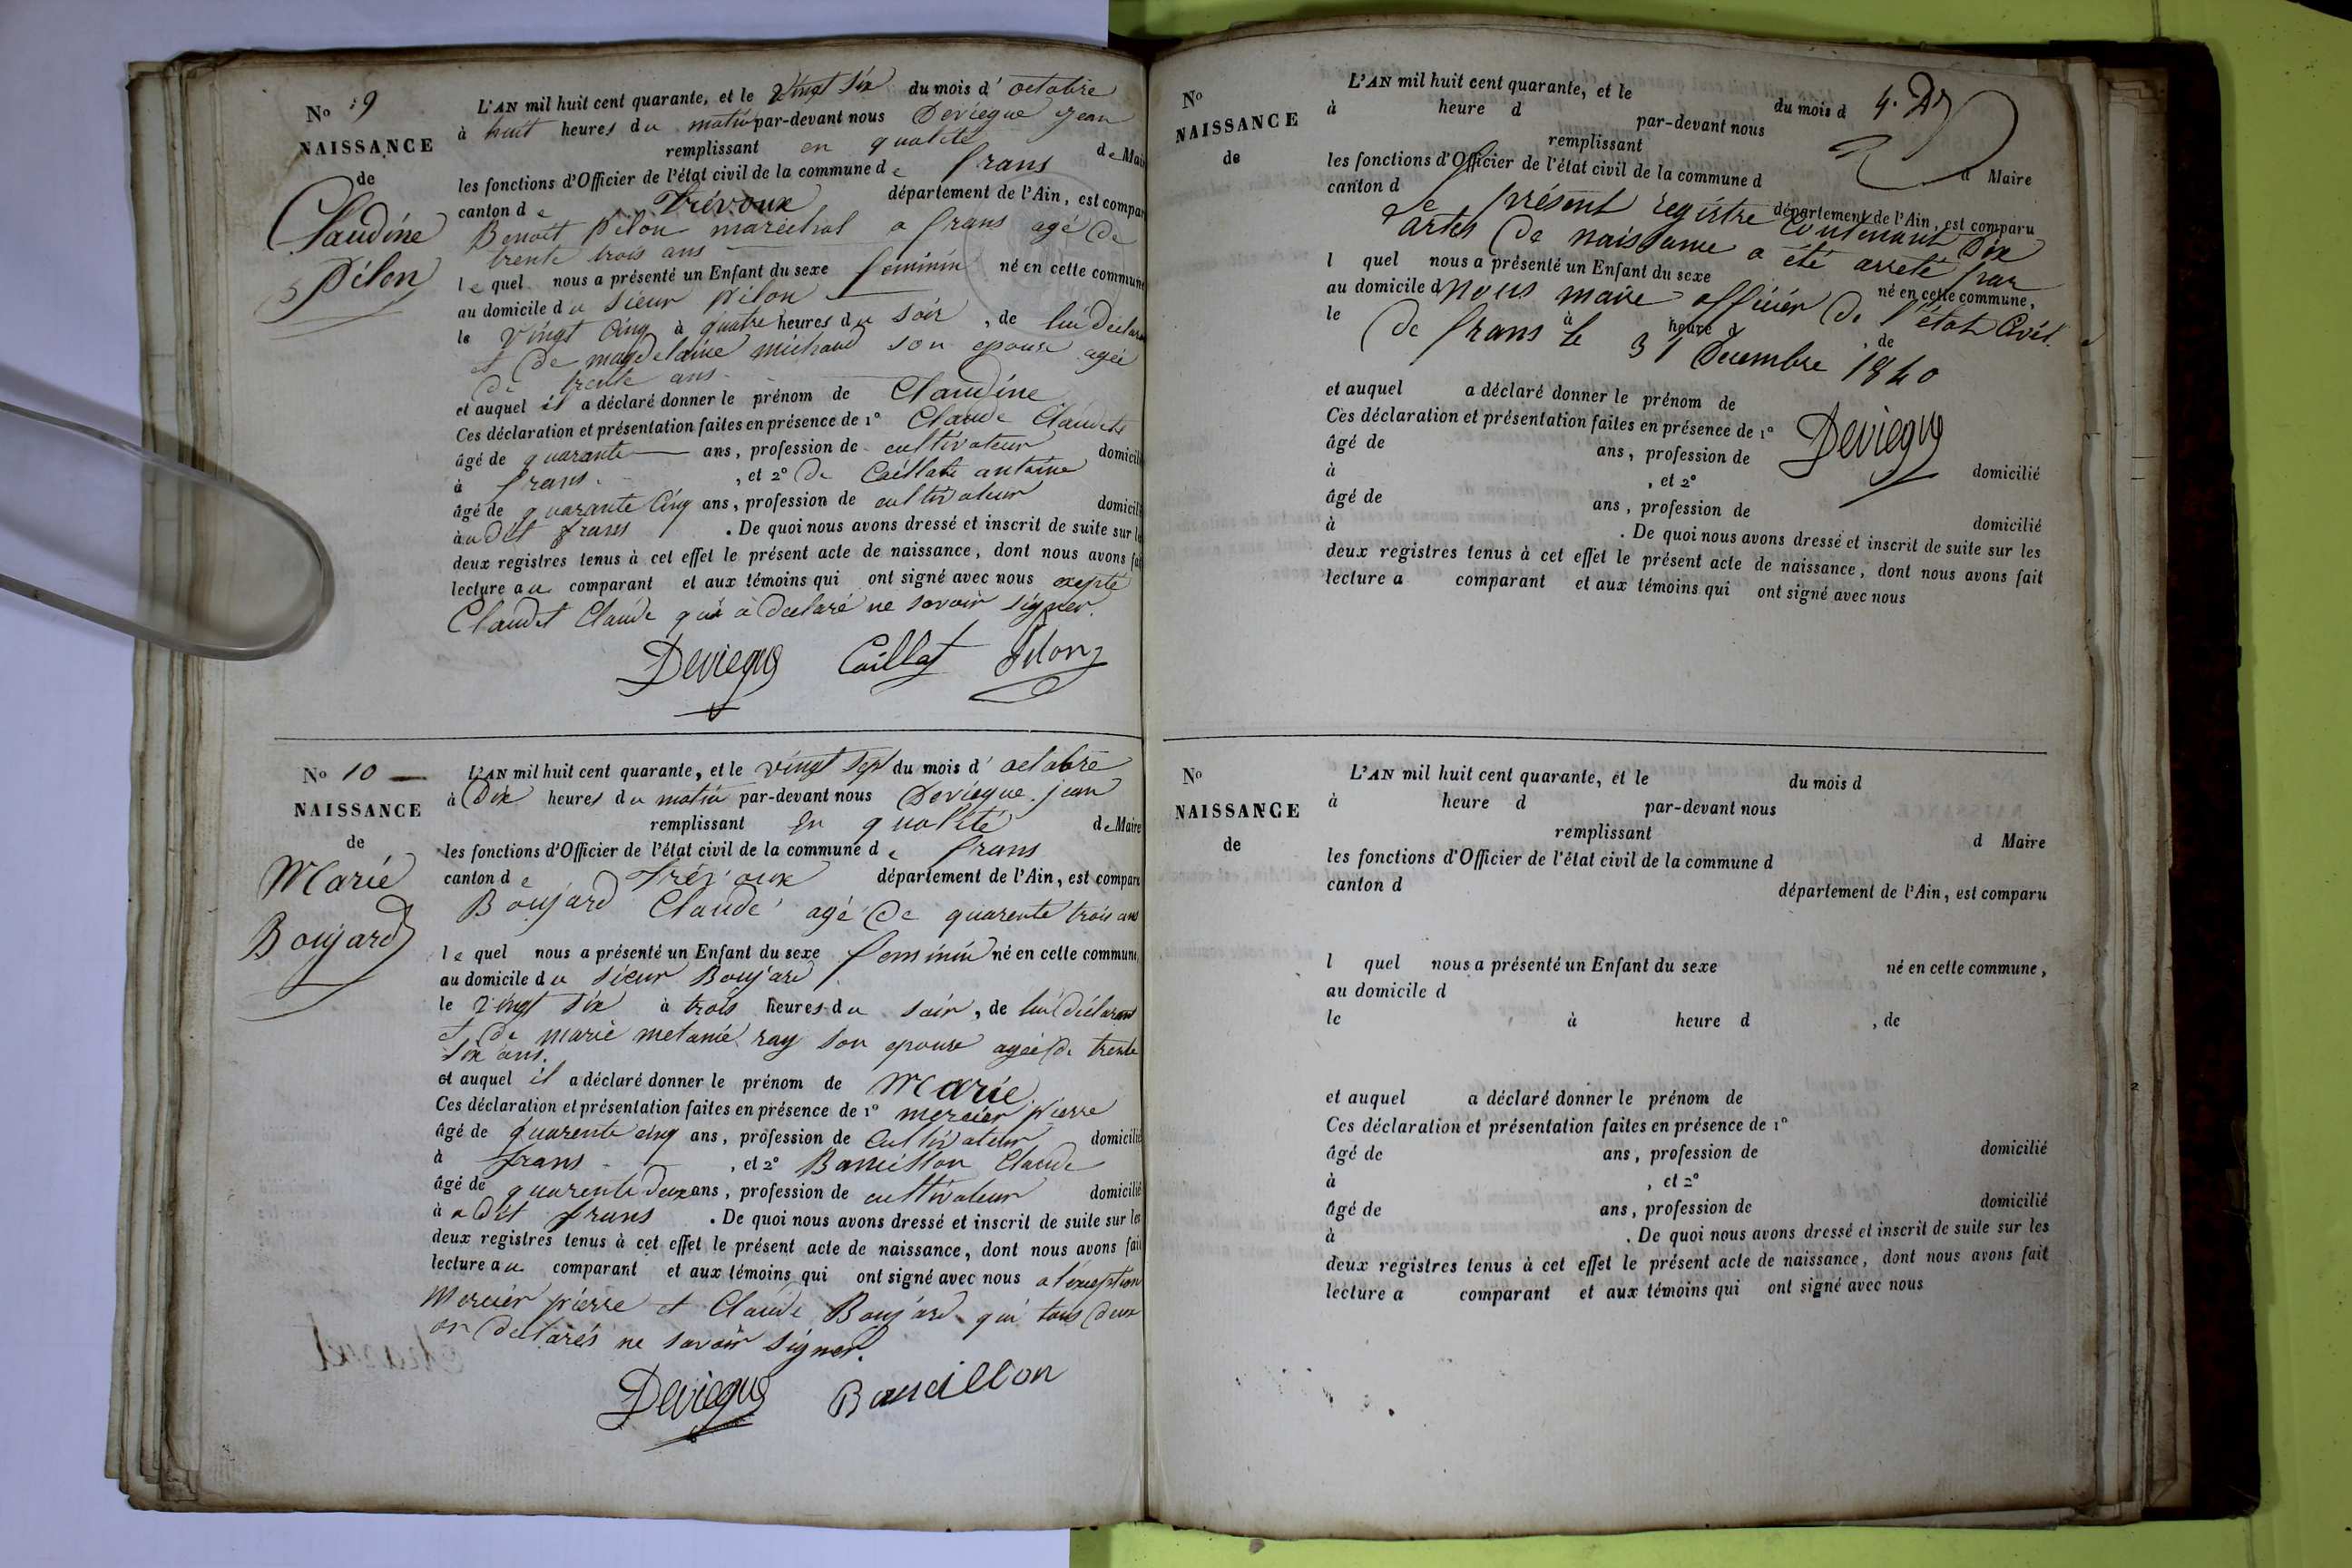 No 9
NAISSANCE
de
Claudine
Pilon
L'AN mil huit cent quarante, et le vingt six du mois d'octobre
à huit heures du matin par-devant nous Deviegue Jean
remplissant en qualité de Mai
les fonctions d'Officier de l'état civil de la commune de frans
canton de Trévoux département de l'Ain, est compar
Benoit Pilon marechal a frans agé de
trente trois ans
le quel nous a présenté un Enfant du sexe feminin né en cette commune
au domicile du sieur pilon
le vingt cinq à quatre heures du soir, de lui déclara
et de magdelaine michaud son epouse agée
de trente ans
et auquel il a déclaré donner le prénom de Claudine
Ces déclaration et présentation faites en présence de 1° Claude Claudet
âgé de quarante ans, profession de cultivateur domicili
à frans, et 2° de Caillat antoine
âgé de quarante cinq ans, profession de cultivateur domicili
à udit frans. De quoi nous avons dressé et inscrit de suite sur le
deux registres tenus à cet effet le présent acte de naissance, dont nous avons fai
lecture au comparant et aux témoins qui ont signé avec nous exepté
Claudet Claude qui a déclaré ne savoir signer.
Deviegue Caillat Pilon
No 10
NAISSANCE
de
Marie
Boujard
L'AN mil huit cent quarante, et le vingt sept du mois d'octobre
à dix heures du matin par-devant nous Deviegue jean
remplissant en qualité de Maire
les fonctions d'Officier de l'état civil de la commune de frans
canton de Trévoux département de l'Ain, est comparu
Boujard Claude agé de quarente trois ans
le quel nous a présenté un Enfant du sexe feminin né en cette commune
au domicile du sieur Boujard
le vingt six à trois heures du soir, de lui déclarant
et de marie melanie ray son epouse agée de trente
six ans.
et auquel il a déclaré donner le prénom de Marie
Ces déclaration et présentation faites en présence de 1° mercier pierre
âgé de quarente cinq ans, profession de cultivateur domicilié
à frans, et 2° Bancillon Claude
âgé de quarente deux ans, profession de cultivateur domicilié
à udit frans. De quoi nous avons dressé et inscrit de suite sur les
deux registres tenus à cet effet le présent acte de naissance, dont nous avons fait
lecture au comparant et aux témoins qui ont signé avec nous a l'exeption
Mercier pierre et Claude Boujard qui tous deux
on declarés ne savoir signer.
Deviegue Bancillon
No
NAISSANCE
de
L'AN mil huit cent quarante, et le du mois d
à heure d par-devant nous
remplissant d Maire
les fonctions d'Officier de l'état civil de la commune d
canton d département de l'Ain, est comparu
Le présent registre contenant dix
actes de naissance a été arreté par
l quel nous a présenté un Enfant du sexe né en cette commune,
au domicile d nous maire officier de l'état civil
le à heure d, de
de frans le 31 Decembre 1840
et auquel a déclaré donner le prénom de
Ces déclaration et présentation faites en présence de 1°
Deviegue
âgé de ans, profession de domicilié
à, et 2°
âgé de ans, profession de domicilié
à. De quoi nous avons dressé et inscrit de suite sur les
deux registres tenus à cet effet le présent acte de naissance, dont nous avons fait
lecture a comparant et aux témoins qui ont signé avec nous
No
NAISSANCE
de
L'AN mil huit cent quarante, et le du mois d
à heure d par-devant nous
remplissant d Maire
les fonctions d'Officier de l'état civil de la commune d
canton d département de l'Ain, est comparu
l quel nous a présenté un Enfant du sexe né en cette commune,
au domicile d
le à heure d, de
et auquel a déclaré donner le prénom de
Ces déclaration et présentation faites en présence de 1°
âgé de ans, profession de domicilié
à, et 2°
âgé de ans, profession de domicilié
à. De quoi nous avons dressé et inscrit de suite sur les
deux registres tenus à cet effet le présent acte de naissance, dont nous avons fait
lecture a comparant et aux témoins qui ont signé avec nous